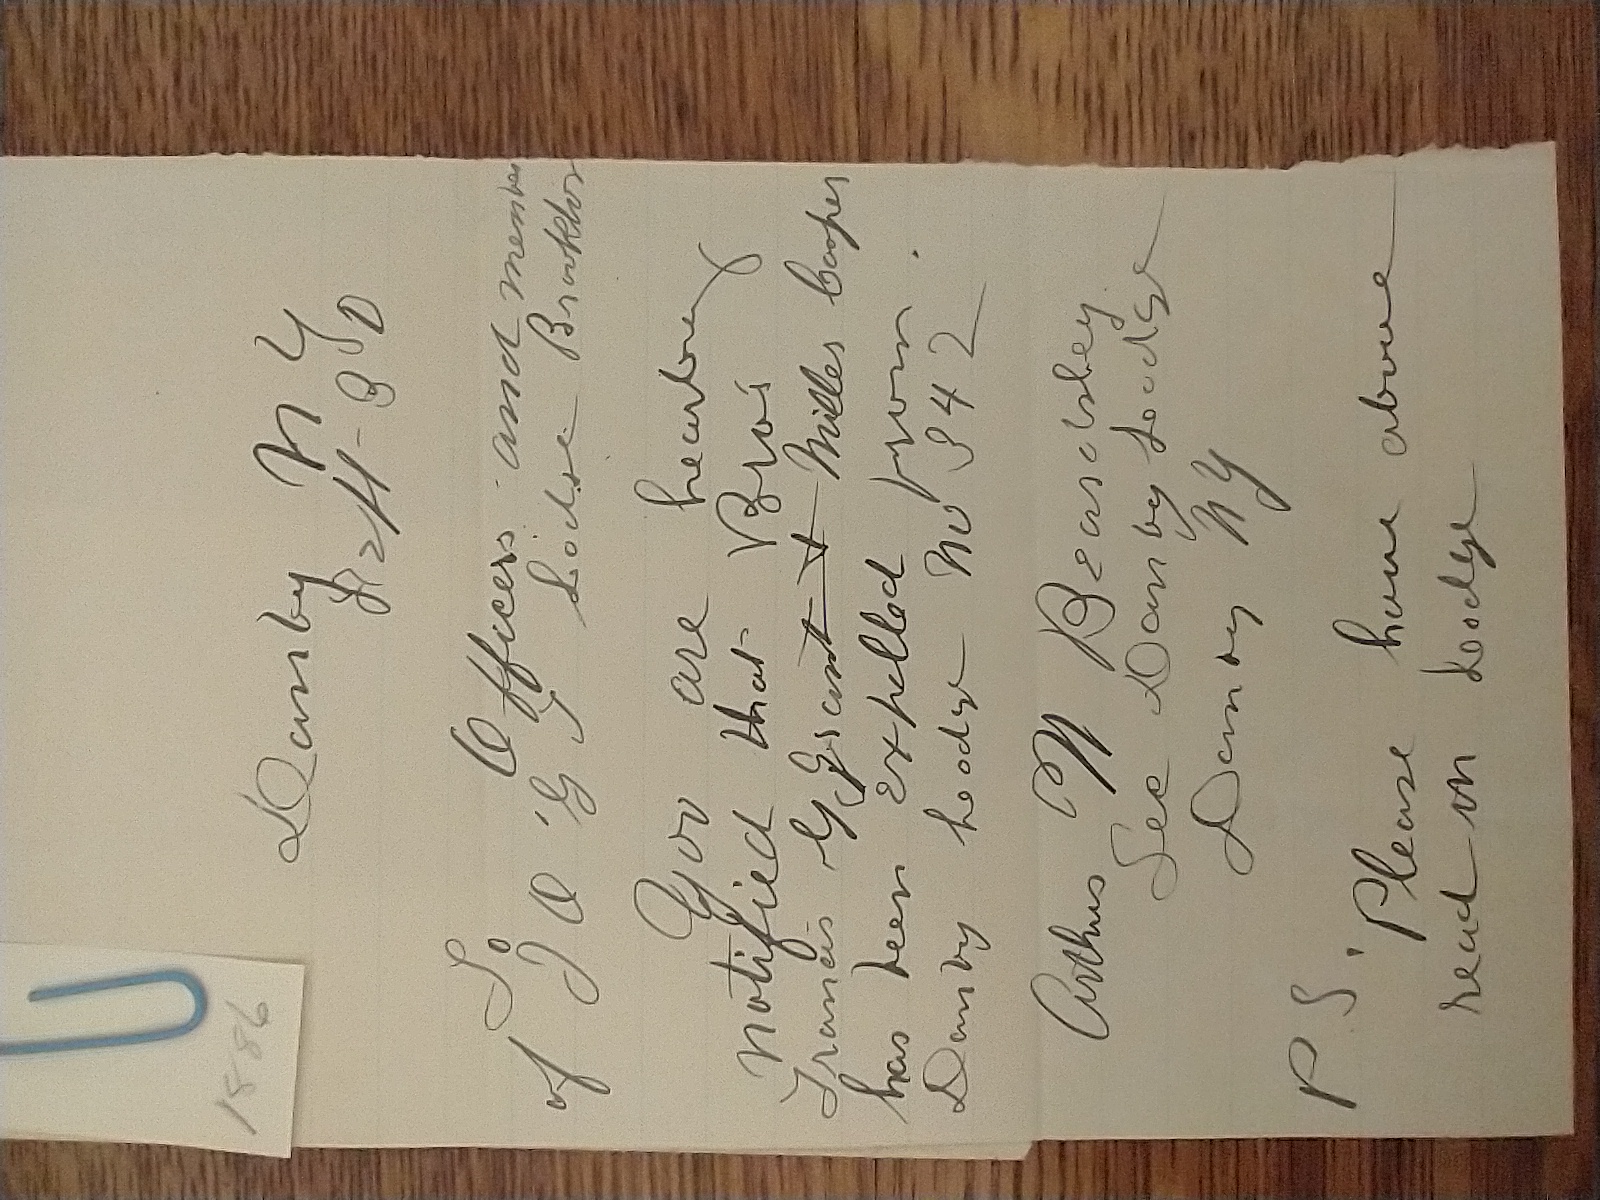 1886
Danby N Y
To Officers and member
of I O G T Lodge
You are hearby
notified that Bros
Francis G Grant & Miller Cooper
has been expelled from
Danby Loodge No 342
Arthur M Beardsley
Sec Danby Loodge
Danby NY
P S. Please have above
read in Loodge